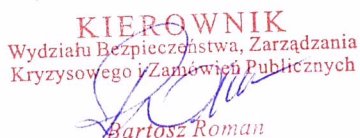 KIEROWNIK
Wydziału Bezpieczeństwa, Zarządzania
Kryzysowego i Zamówień Publicznych
Bartosz Roman